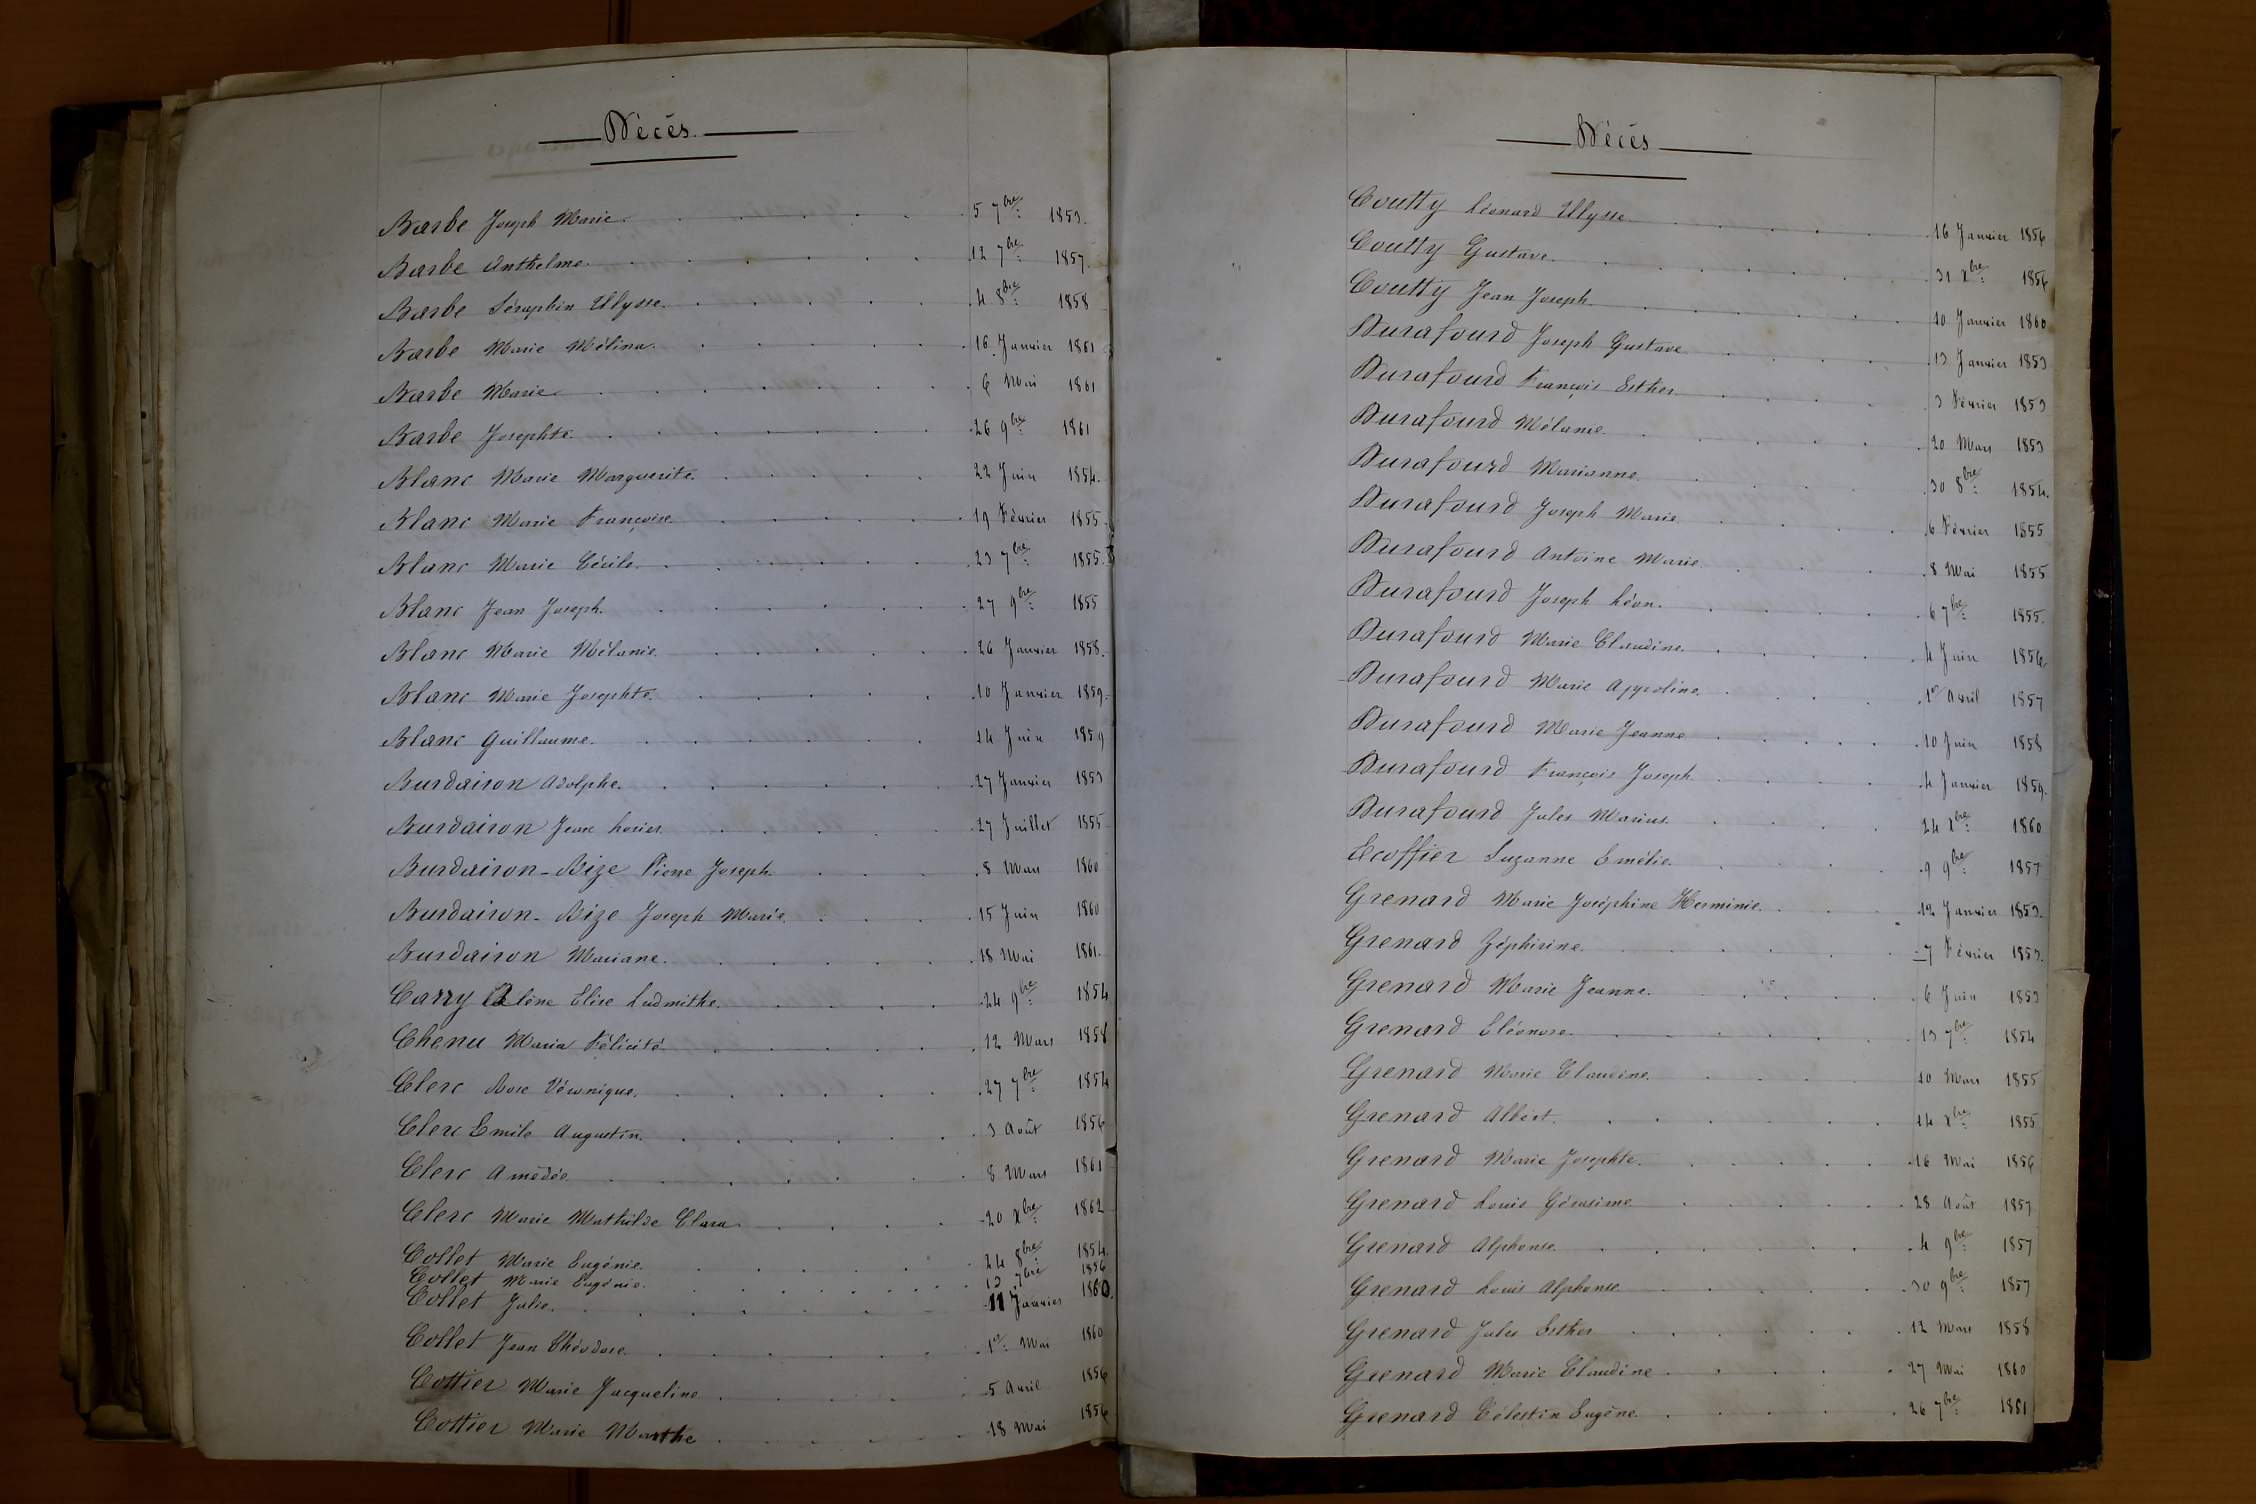 Décès.
Barbe Joseph Marie. 5 7bre 1853.
Barbe Anthelme. 12 7bre 1857.
Barbe Séraphin Ulysse. 4 8bre 1858
Barbe Marie Mélina. 16 Janvier 1861
Barbe Marie 6 Mai 1861
Barbe Josephte. 26 9bre 1861
Blanc Marie Marguerite. 22 Juin 1854.
Blanc Marie Françoise. 19 Février 1855.
Blanc Marie Cécile. 23 7bre 1855.
Blanc Jean Joseph. 27 9bre 1855
Blanc Marie Mélanie. 26 Janvier 1858.
Blanc Marie Josephte. 10 Janvier 1859.
Blanc Guillaume. 24 Juin 1859
Burdairon Adolphe. 27 Janvier 1853
Burdairon Jean 27 Juillet 1855
Burdairon-Bize Pierre Joseph. 8 Mars 1860
Burdairon-Bize Joseph Marie. 15 Juin 1860
Burdairon Mariane. 18 Mai 1861.
Carry Elise Ludmithe. 24 9bre 1854
Chenu Maria Félicité. 12 Mars 1858
Clerc Rose Véronique. 27 7bre 1854
Clerc Emile Augustin. 3 Août 1856
Clerc Amédée 8 Mars 1861
Clerc Marie Mathilde Clara 20 Xbre 1862
Collet Marie Eugénie. 24 8bre 1854.
Collet Marie Eugénie. 13 7bre 1856
Collet Julie. 11 Janvier 1860.
Collet Jean Théodore. 1er Mai 1860
Cottier Marie Jacqueline 5 Avril 1856
Cottier Marie Marthe 18 Mai 1856
Décès
Coutty Léonard Ulysse 16 Janvier 1856
Coutty Gustave. 31 Xbre 1856
Coutty Jean Joseph 10 Janvier 1860
Durafourd Joseph Gustave 13 Janvier 1853
Durafourd François Esther 3 Février 1853
Durafourd Mélanie. 20 Mars 1853
Durafourd Marianne 30 8bre 1854.
Durafourd Joseph Marie 6 Février 1855
Durafourd Antoine Marie 8 Mai 1855
Durafourd Joseph Léon. 6 7bre 1855.
Durafourd Marie Claudine 4 Juin 1856.
Durafourd Marie Appoline. 1er Avril 1857
Durafourd Marie Jeanne 10 Juin 1858
Durafourd François Joseph 4 Janvier 1859.
Durafourd Jules Marius. 24 Xbre 1860
Ecoffier Suzanne Emélie. 9 9bre 1857
Grenard Marie Joséphine Herminie. 12 Janvier 1853.
Grenard Zéphirine. 7 Février 1853.
Grenard Marie Jeanne. 6 Juin 1853
Grenard Eléonore. 13 7bre 1854
Grenard Marie Claudine. 10 Mars 1855
Grenard Albert. 14 Xbre 1855
Grenard Marie Josephte. 16 Mai 1856
Grenard Louis Gérasime 28 Août 1857
Grenard Alphonse. 4 9bre 1857
Grenard Louis Alphonse 30 9bre 1857
Grenard Jules Esther 12 Mars 1858
Grenard Marie Claudine 27 Mai 1860
Grenard Célestin Eugène. 26 7bre 1861